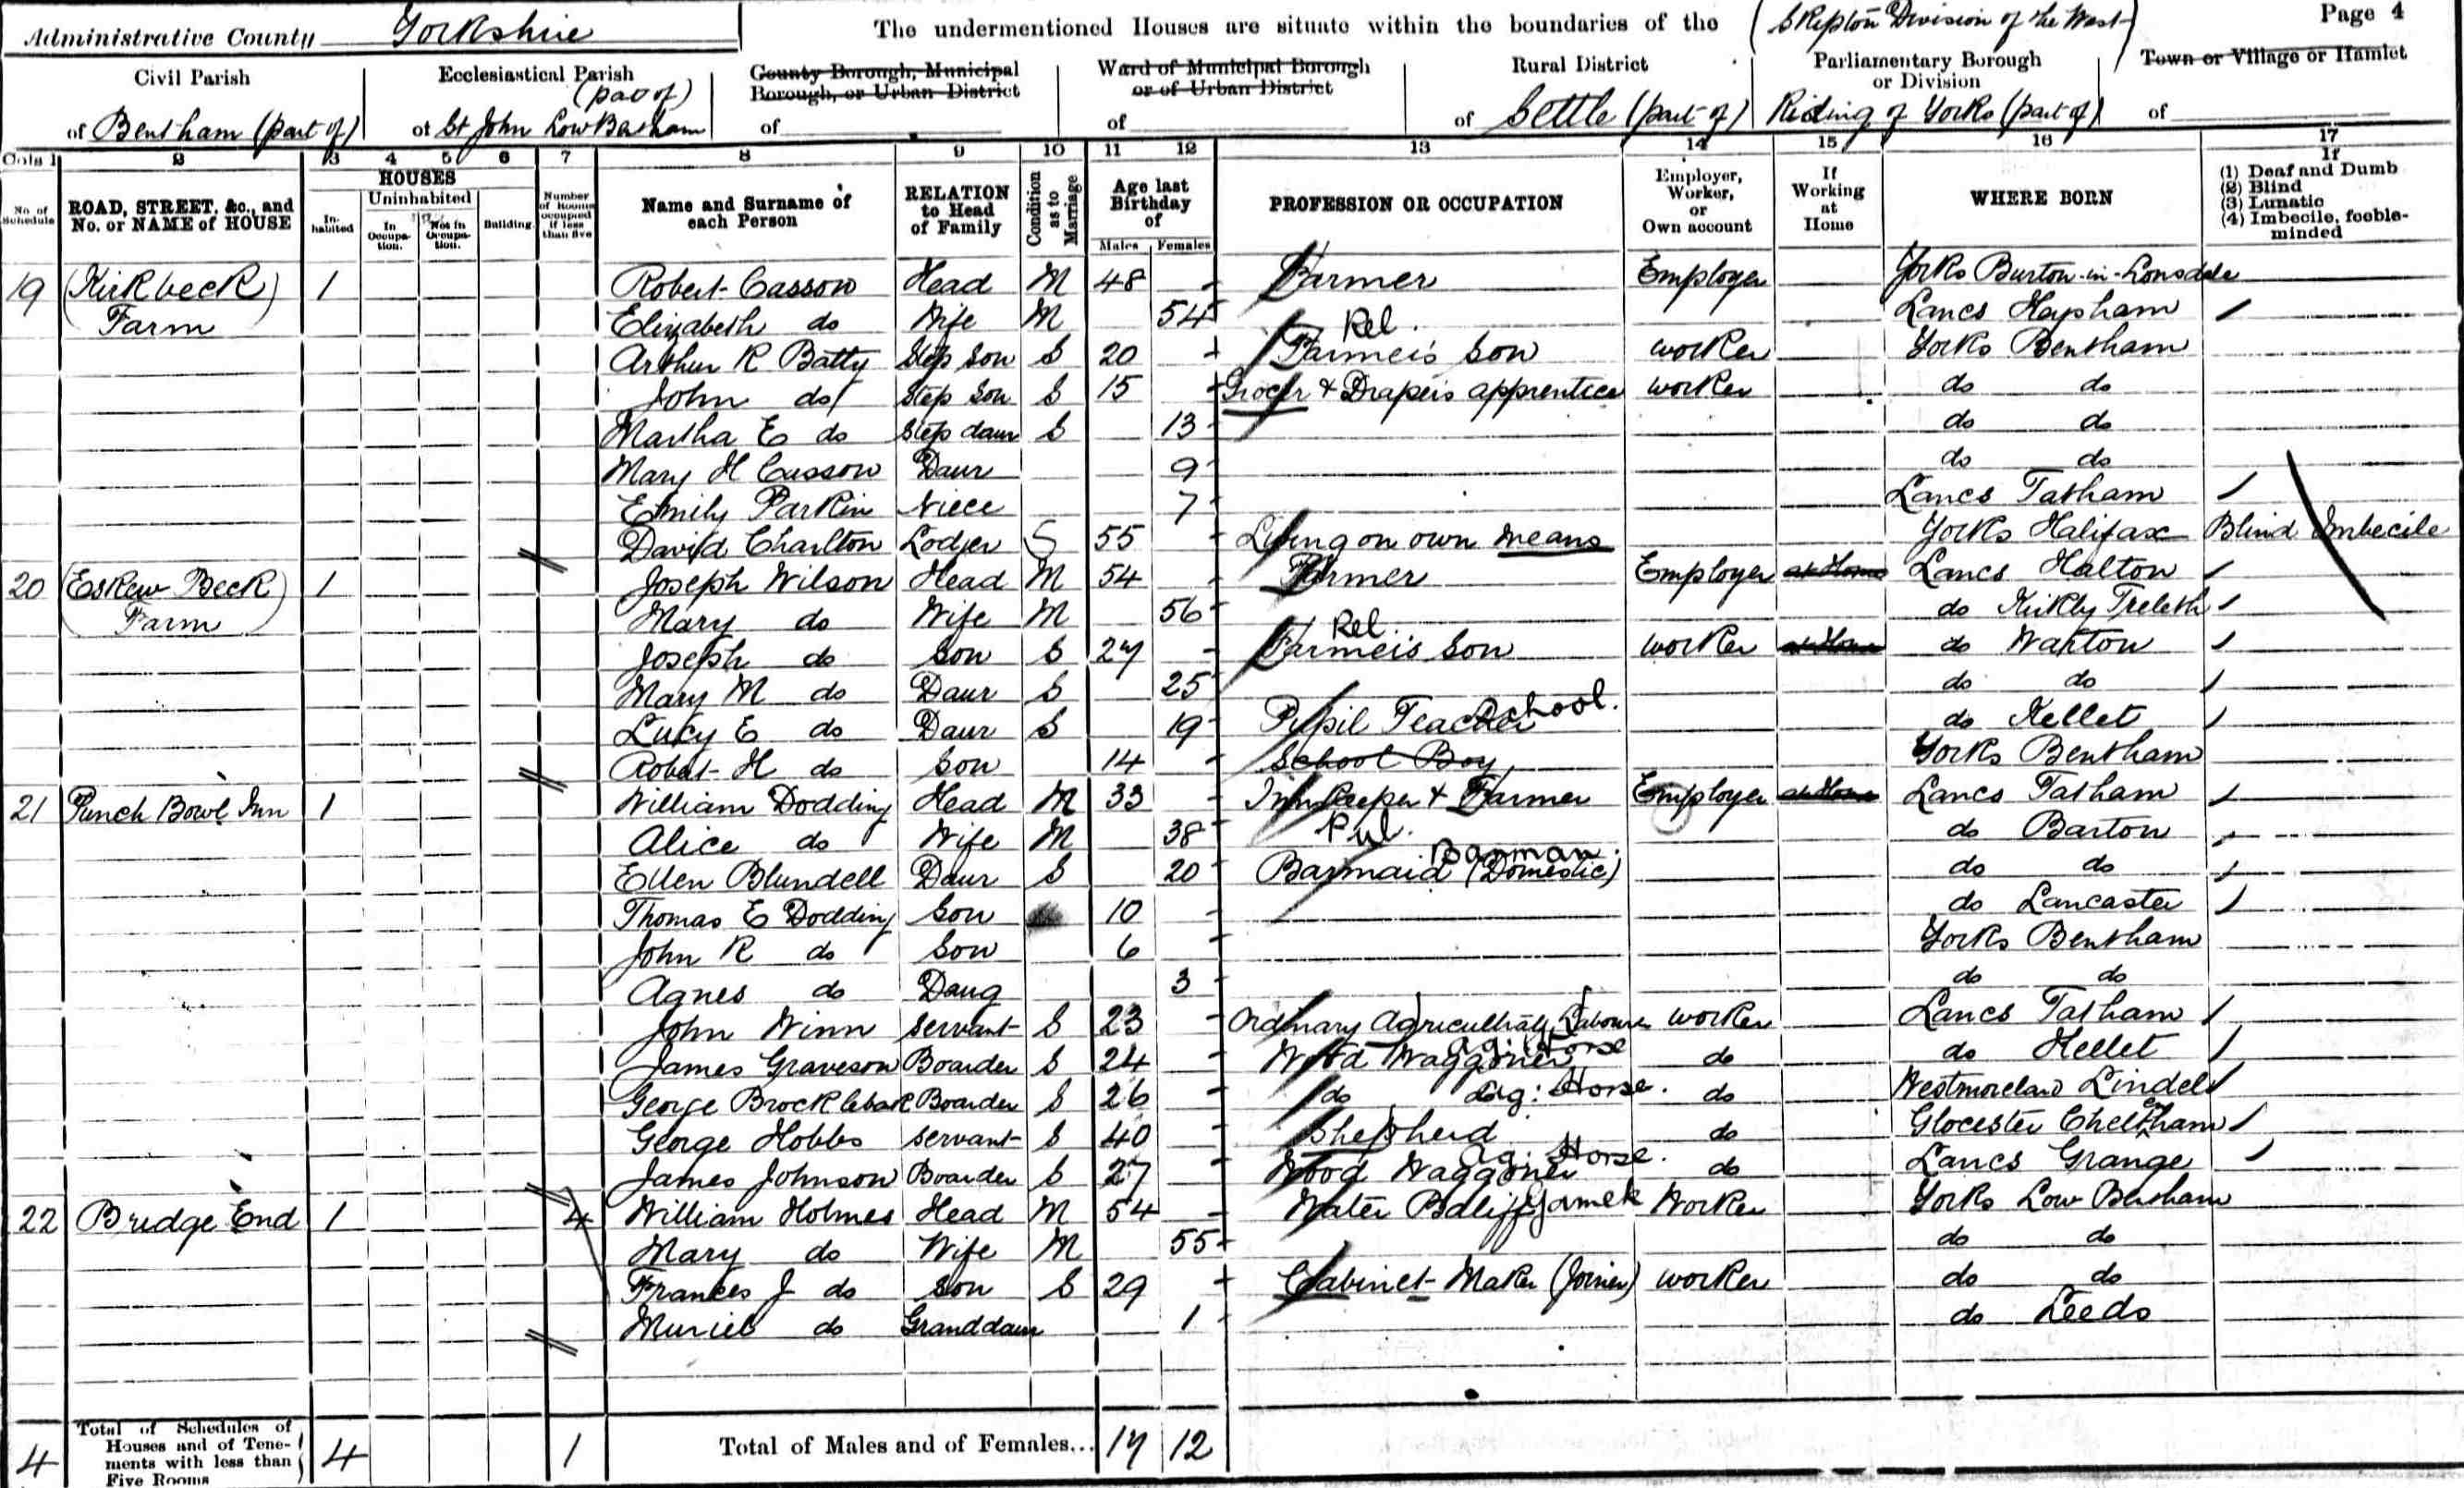 Administrative County Yorkshire The undermentioned Houses are situate within the boundaries of the (Skipton Division of the West) Page 4
Civil Parish Ecclesiastical Parish County Borough, Municipal Borough, or Urban District Ward of Municipal Borough or of Urban District Rural District Parliamentary Borough or Division Town or Village or Hamlet
of Bentham (part of) of St John Low Bentham (part of) of of of Settle (part of) Riding of Yorks (part of) of
Cols 1 2 3 4 5 6 7 8 9 10 11 12 13 14 15 16 17
No. of Schedule
ROAD, STREET, &c., and No. or NAME of HOUSE
HOUSES
Inhabited
Uninhabited
In Occupation.
Not in Occupation.
Building.
Number of Rooms occupied if less than five
Name and Surname of each Person
RELATION to Head of Family
Condition as to Marriage
Age last Birthday of
Males Females
PROFESSION OR OCCUPATION
Employer, Worker, or Own account
If Working at Home
WHERE BORN
If
(1) Deaf and Dumb
(2) Blind
(3) Lunatic
(4) Imbecile, feeble-minded
19 (Kirkbeck) 1 Robert Casson Head M 48 Farmer Employer Yorks Burton-in-Lonsdale
Farm Elizabeth do Wife M 54 Lancs Heysham
Arthur R Batty Step Son S 20 Farmer's Son Rel. worker Yorks Bentham
John do Step Son S 15 Grocer & Draper's apprentice worker do do
Martha E do Step daur S 13 do do
Mary H Casson Daur 9 do do
Emily Parkin Niece 7 Lancs Tatham
David Charlton Lodger S 55 Living on own means Yorks Halifax Blind Imbecile
20 (Eskew Beck) 1 Joseph Wilson Head M 54 Farmer Employer at Home Lancs Halton
Farm Mary do Wife M 56 do Kirkby Treleth
Joseph do Son S 27 Farmer's Son Rel. worker at Home do Warton
Mary M do Daur S 25 do do
Lucy E do Daur S 19 Pupil Teacher School. do Kellet
Robert H do Son 14 School Boy Yorks Bentham
21 Punch Bowl Inn 1 William Dodding Head M 33 Inn Keeper & Farmer Employer at Home Lancs Tatham
Alice do Wife M 38 Pub. do Barton
Ellen Blundell Daur S 20 Barmaid (Domestic) Barman. do do
Thomas E Dodding Son 10 do Lancaster
John R do Son 6 Yorks Bentham
Agnes do Daug 3 do do
John Winn Servant S 23 Ordinary Agricultural Labourer worker Lancs Tatham
James Graveson Boarder S 24 Wood Waggoner ag: Horse do do Kellet
George Brocklebank Boarder S 26 do ag: Horse. do Westmoreland Lindel
George Hobbs Servant S 40 Shepherd do Glocester Cheltenham
James Johnson Boarder S 27 Wood Waggoner ag: Horse. do Lancs Grange
22 Bridge End 1 4 William Holmes Head M 54 Water Baliff Gamek Worker Yorks Low Bentham
Mary do Wife M 55 do do
Frances J do Son S 29 Cabinet Maker (Joiner) worker do do
Muriel do Granddaur 1 do Leeds
4 Total of Schedules of Houses and of Tenements with less than Five Rooms 4 1 Total of Males and of Females... 17 12